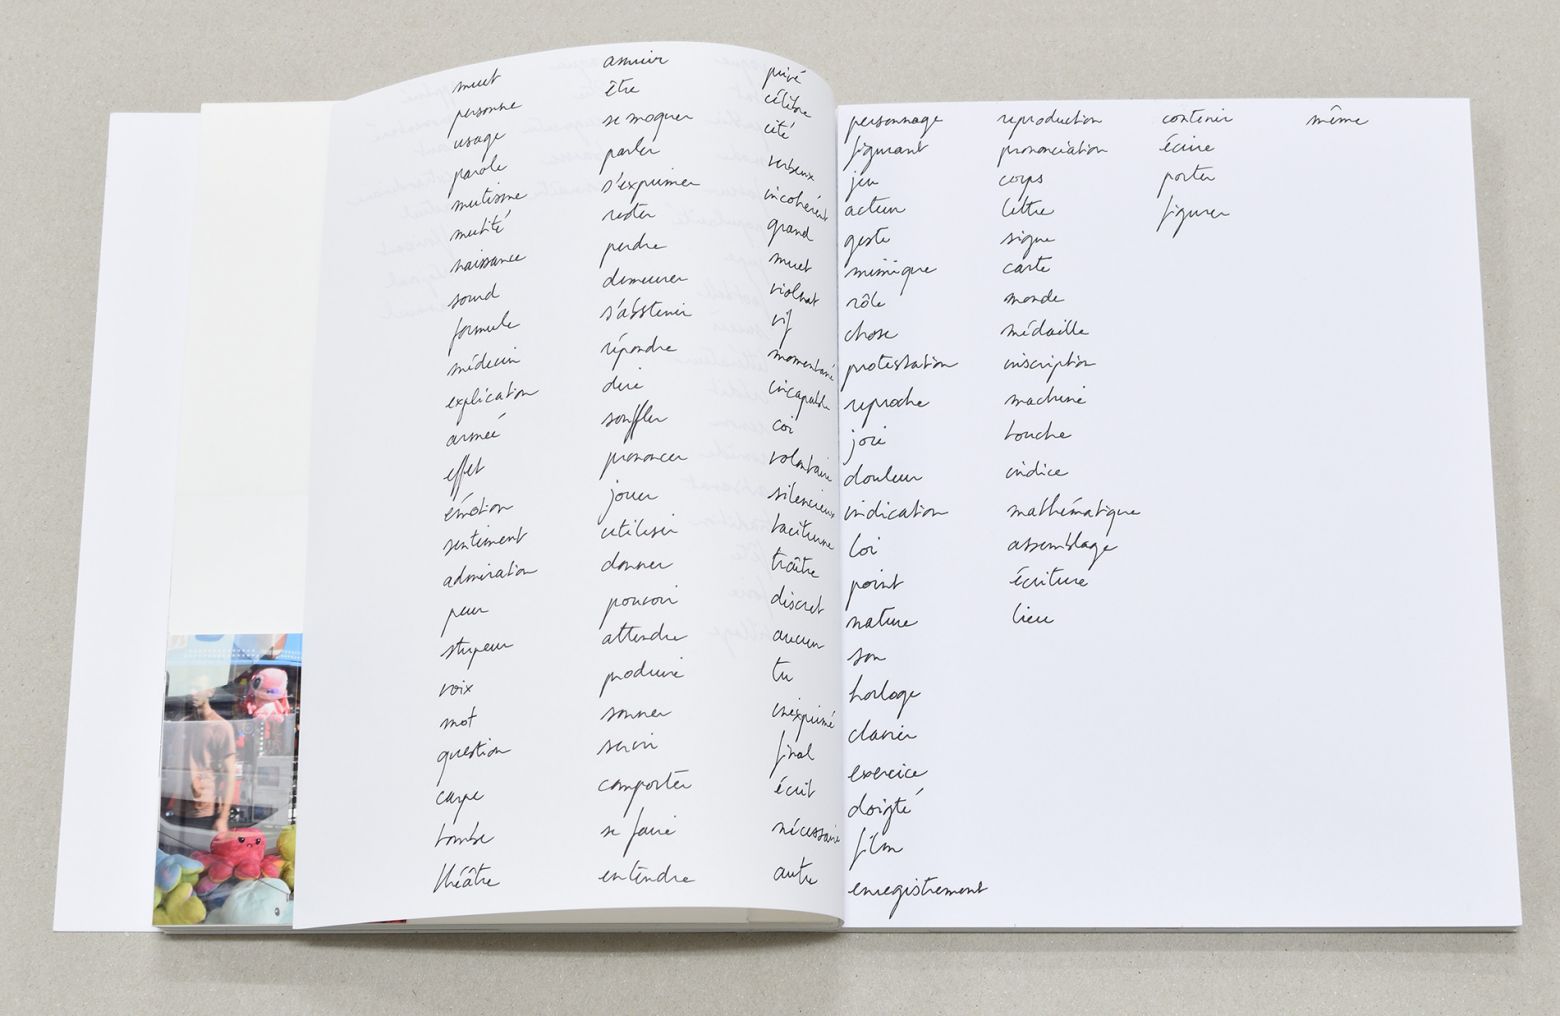 muet
personne
usage
parole
mutisme
mutité
naissance
sourd
formule
médecin
explication
armée
effet
émotion
sentiment
admiration
peur
stupeur
voix
mot
question
carpe
tombe
théâtre
amuïr
être
se moquer
parler
s'exprimer
rester
perdre
demeurer
s'abstenir
répondre
dire
souffler
prononcer
jouer
utiliser
donner
pouvoir
attendre
produire
sonner
servir
comporter
se faire
entendre
privé
célèbre
cité
verbeux
incohérent
grand
muet
violent
vif
momentané
incapable
coi
volontaire
silencieux
taciturne
traître
discret
aucun
tu
inexprimé
final
écrit
nécessaire
autre
personnage
figurant
jeu
acteur
geste
mimique
rôle
chose
protestation
reproche
joie
douleur
indication
loi
point
nature
son
horloge
clavier
exercice
doigté
film
enregistrement
reproduction
prononciation
corps
lettre
signe
carte
monde
médaille
inscription
machine
touche
indice
mathématique
assemblage
écriture
lieu
contenir
écrire
porter
figurer
même